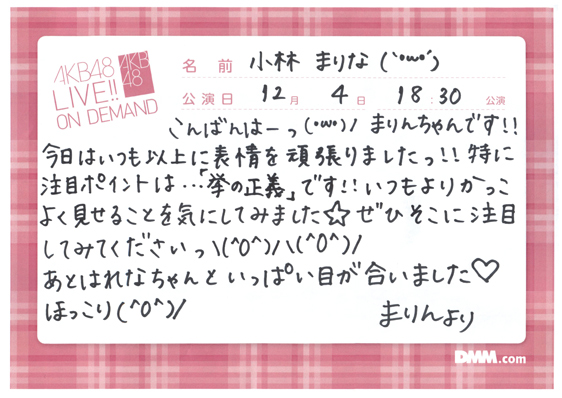 AKB48
LIVE!!
ON DEMAND
AKB
48
名前 小林 まりな (`•ω•´)
公演日 12月 4日 18:30 公演
こんばんはーっ(•ω•)ノ まりんちゃんです!!
今日はいつも以上に表情を頑張りましたっ!! 特に
注目ポイントは…「拳の正義」です!! いつもよりかっこ
よく見せることを気にしてみました☆ ぜひそこに注目
してみてくださいっ\(^O^)/\(^O^)/
あとはれなちゃんといっぱい目が合いました♡
ほっこり(^O^)/
まりんより
DMM.com